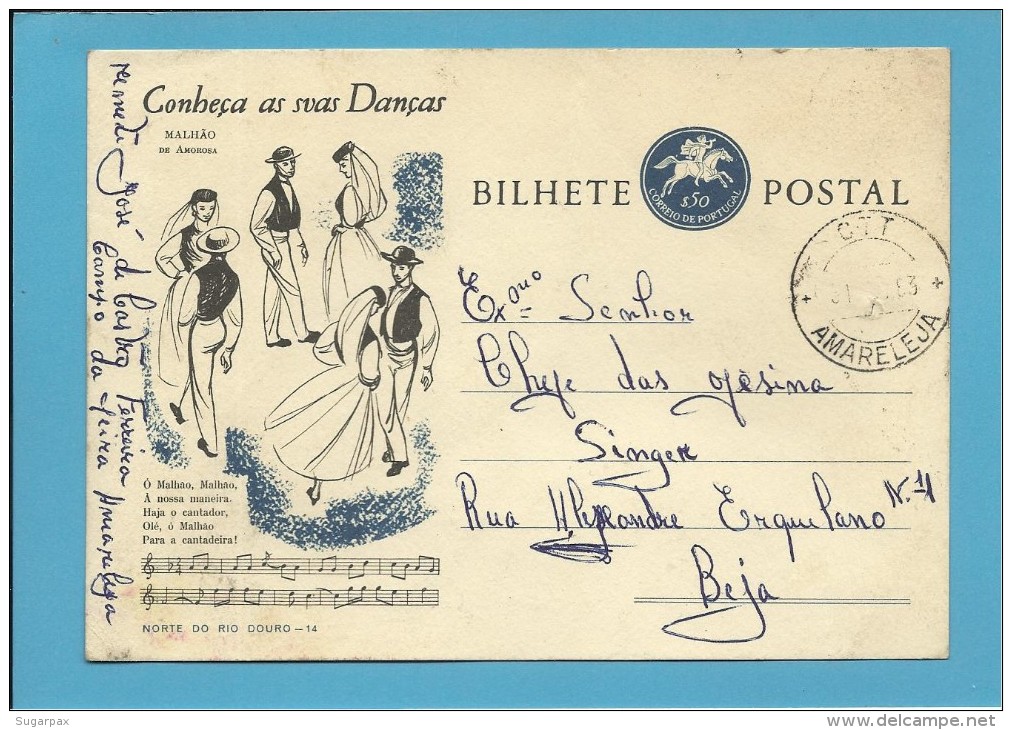 Conheça as svas Danças
MALHÃO
DE AMOROSA
BILHETE
$50
CORREIO DE PORTUGAL
POSTAL
CTT
AMARELEJA
Exmo Senhor
Chefe das ofesina
Singer
Rua Alexandre Erquelano Nº 11
Beja
José de Castro Ferreira
Campo da feira Amareleja
Ó Malhão, Malhão,
À nossa maneira.
Haja o cantador,
Olé, ó Malhão
Para a cantadeira!
NORTE DO RIO DOURO — 14
Sugarpax
www.delcampe.net